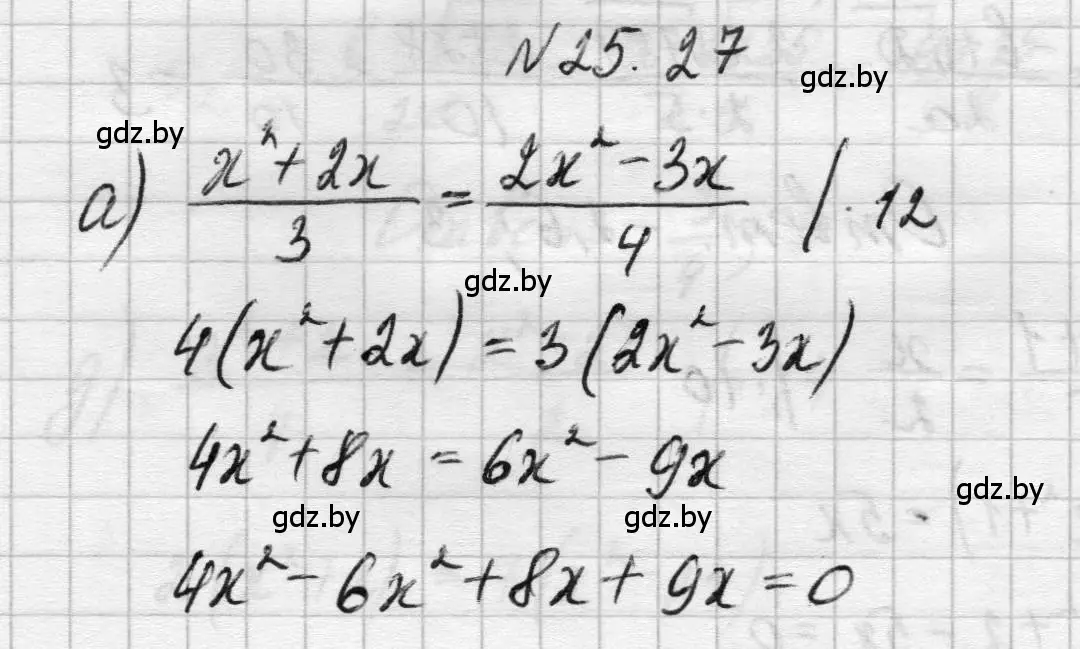 N 25.27
gdz.by
gdz.by
а) \frac{x^2+2x}{3} = \frac{2x^2-3x}{4} / · 12
gdz.by
4(x^2+2x) = 3(2x^2-3x)
4x^2+8x = 6x^2-9x
gdz.by
gdz.by gdz.by
4x^2-6x^2+8x+9x=0